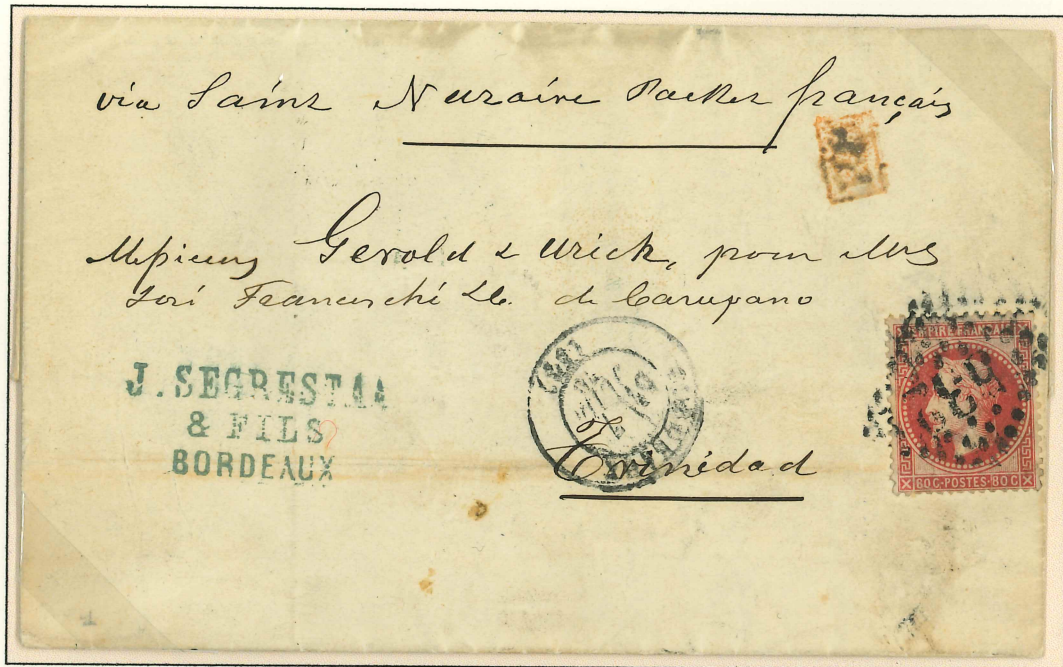 via Saint Nazaire Packet français
Messieurs Gerold & Urich, pour Mrs
José Franceschi &c. de Carupano
Trinidad
J. SEGRESTAA
& FILS
BORDEAUX
BORDEAUX (32)
EMPIRE FRANÇAIS
80 C·POSTES·80 C